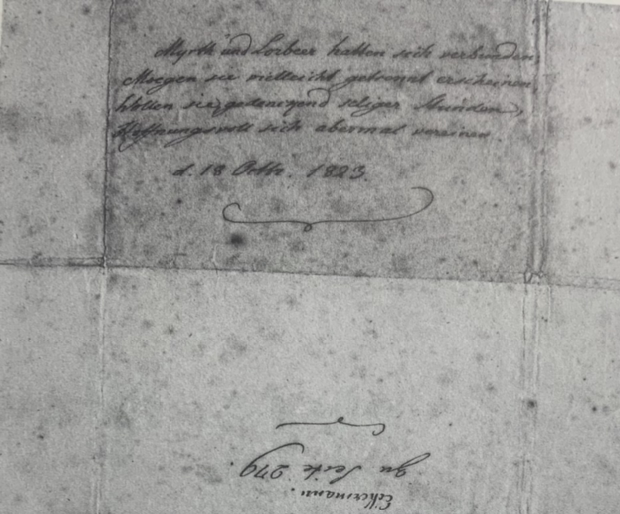 Myrth und Lorbeer hatten sich verbunden,
Moegen sie vielleicht getrennt erscheinen
Wollen sie, gedenckend seliger Stunden,
Hoffnungsvoll sich abermal vereinen.
d. 18 Octbr. 1823.
Eckermann.
zu Seite 279.